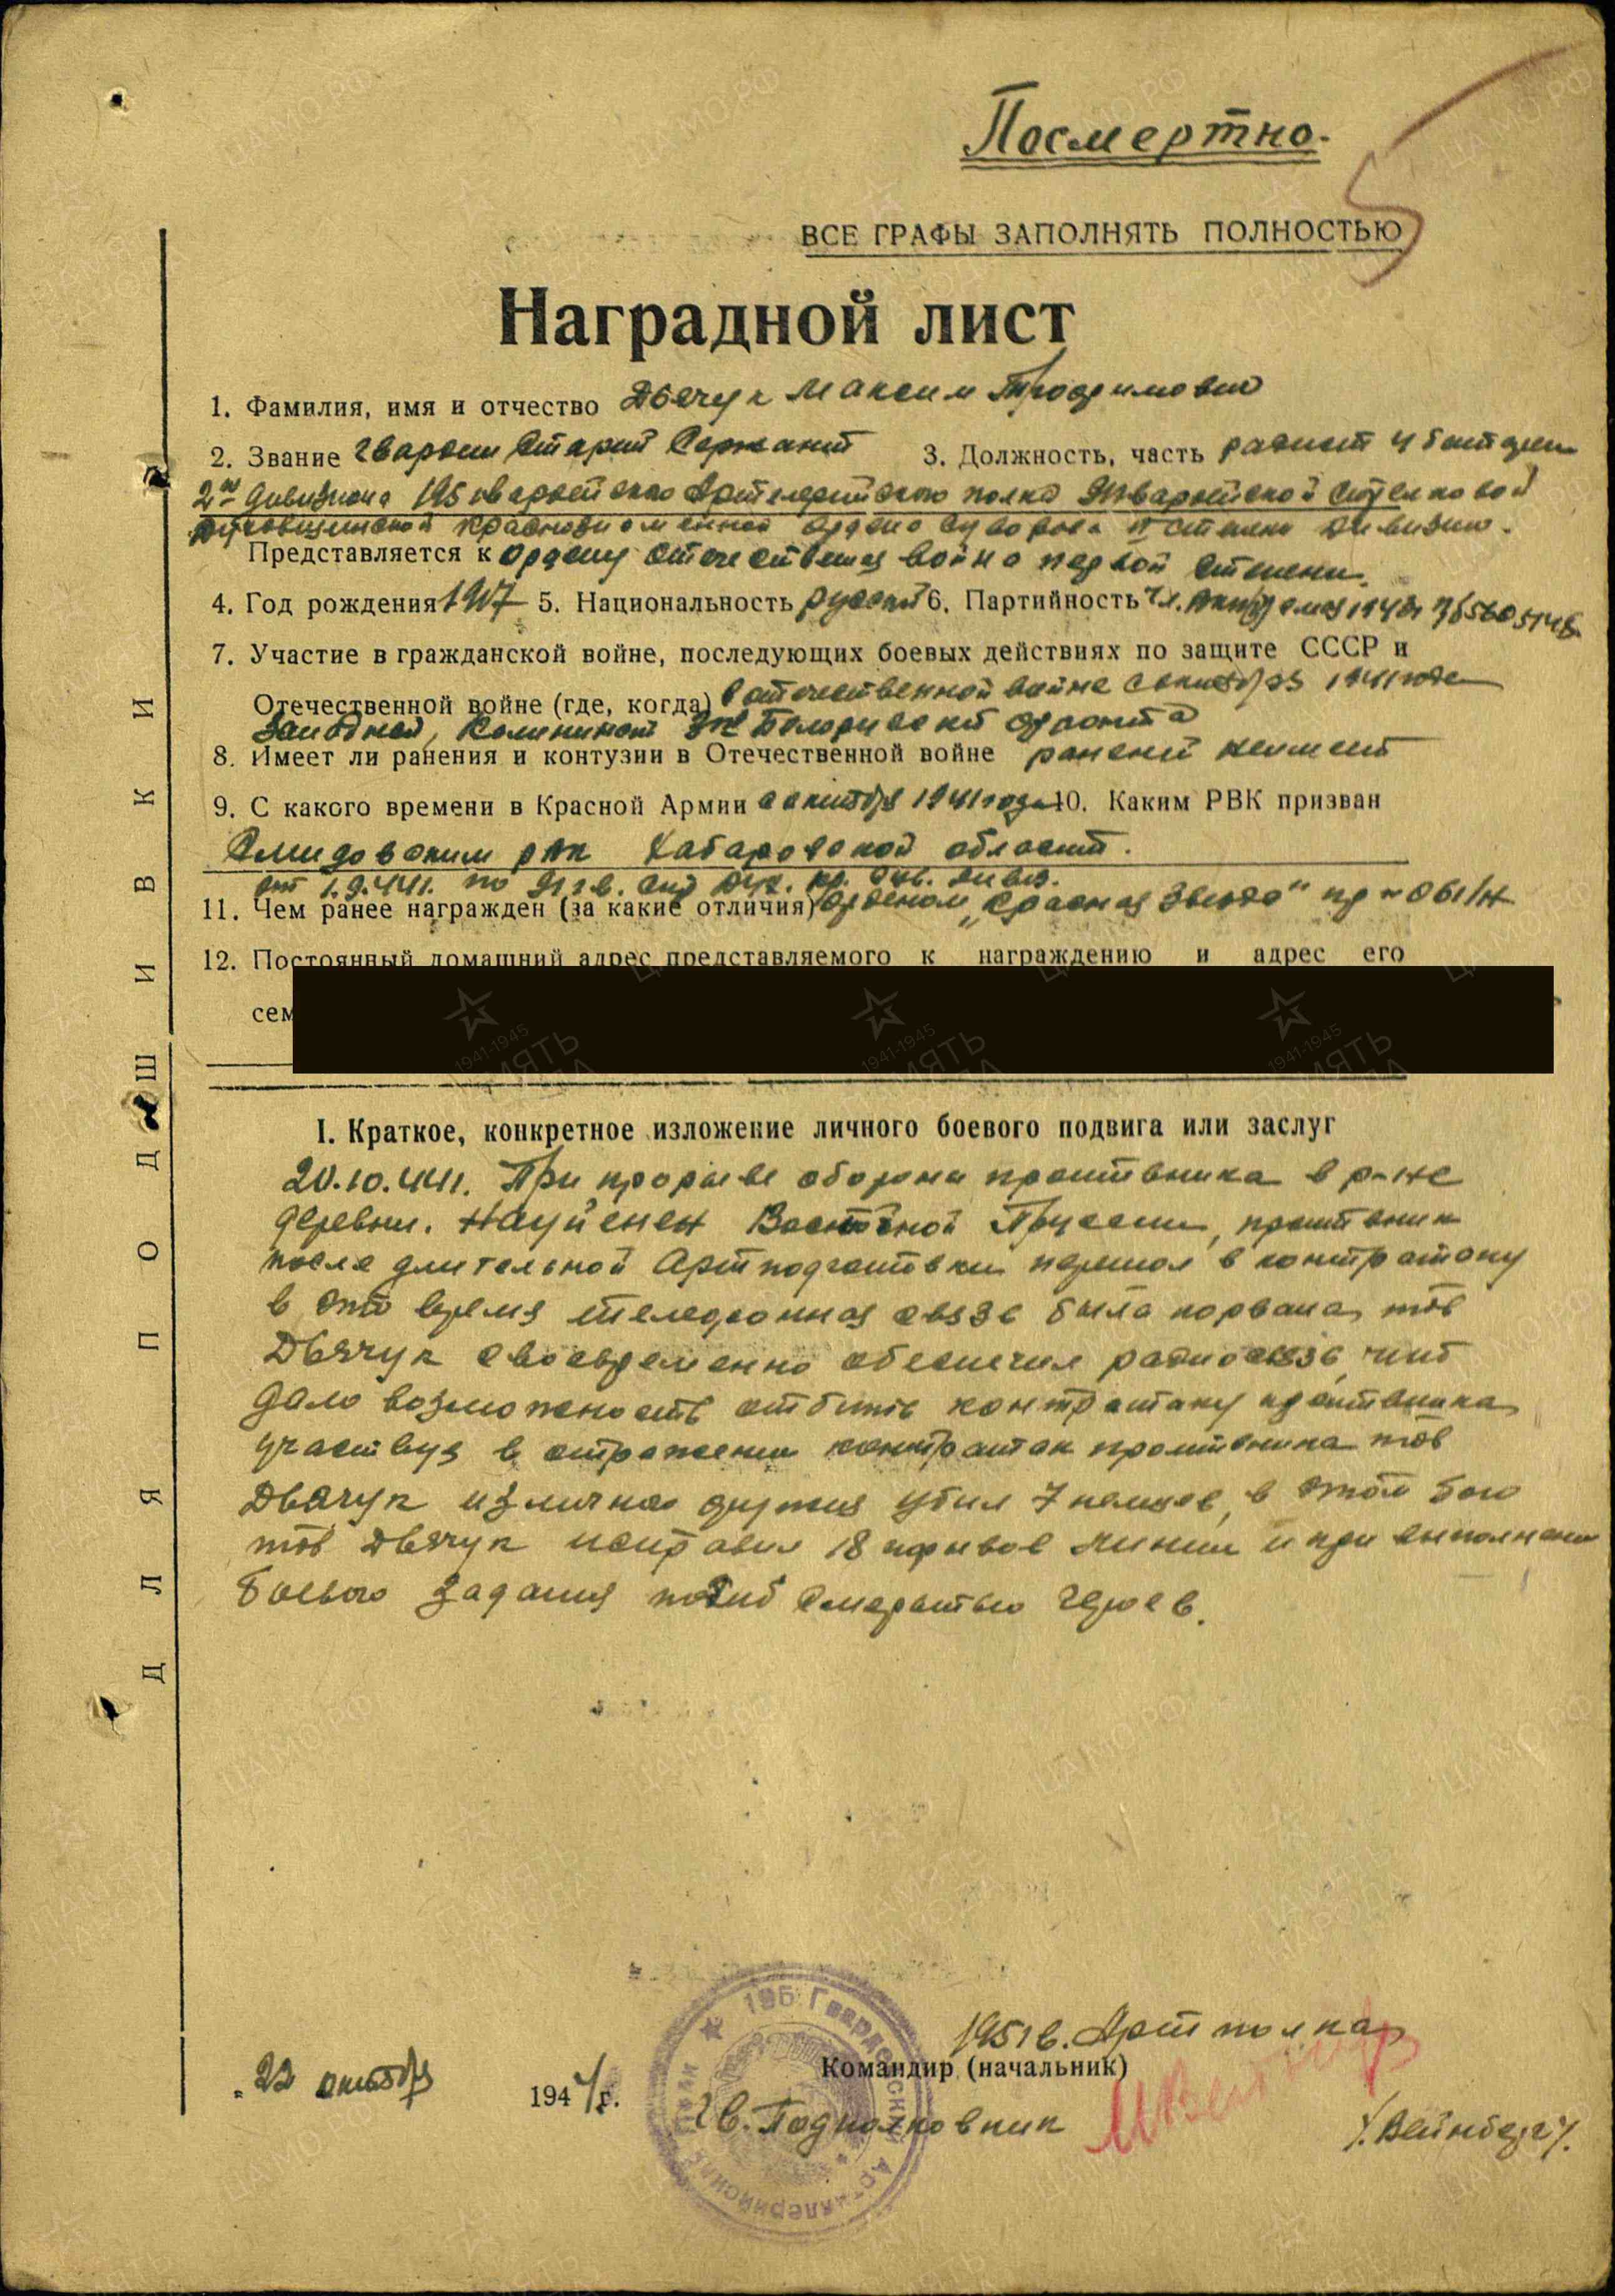 Посмертно.
ВСЕ ГРАФЫ ЗАПОЛНЯТЬ ПОЛНОСТЬЮ
Наградной лист
1. Фамилия, имя и отчество Двячук Максим Трофимович
2. Звание гвардии Старший Сержант 3. Должность, часть радист 4 батареи
2го дивизиона 195 гвардейского Артелерийского полка Гвардейской Стрелковой
Духовщинской Краснознаменной ордена Суворова II степени дивизии.
Представляется к ордену отечественная война первой степени.
4. Год рождения 1907 5. Национальность русский 6. Партийность
7. Участие в гражданской войне, последующих боевых действиях по защите СССР и
Отечественной войне (где, когда) в отечественной войне с октября 1941 года
Западной, Калининский 3й Белорусский фронта
8. Имеет ли ранения и контузии в Отечественной войне ранений не имеет
9. С какого времени в Красной Армии с октября 1941 года 10. Каким РВК призван
Смидовским рвк Хабаровской област.
от 1.9.44г. по
11. Чем ранее награжден (за какие отличия) орденом „Красная Звезда" пр № 061/н
12. Постоянный домашний адрес представляемого к награждению и адрес его
сем
I. Краткое, конкретное изложение личного боевого подвига или заслуг
20.10.44г. При прорыве обороны противника в р-не
деревни. Науйенен Восточной Пруссии, противник
после длительной Артподготовки перешол в контратаку
в это время телефонная связь была порвана, тов
Двячук своевременно обеспечил радиосвязь, чт
дало возможность отбить контратаку противника,
участвуя в отражении контратак противника тов
Двячук из личного оружия убил 7 немцев, в этом бою
тов Двячук исправил 18 порывов линии и при выполнени
боевого задания погиб смертью героев.
195 гв. Арт полка
Командир (начальник)
„22 октября 1944г.
Гв. Подполковник
/. Вейнберг/.
195 Гвардейский Артиллерийский полк
ДЛЯ ПОДШИВКИ